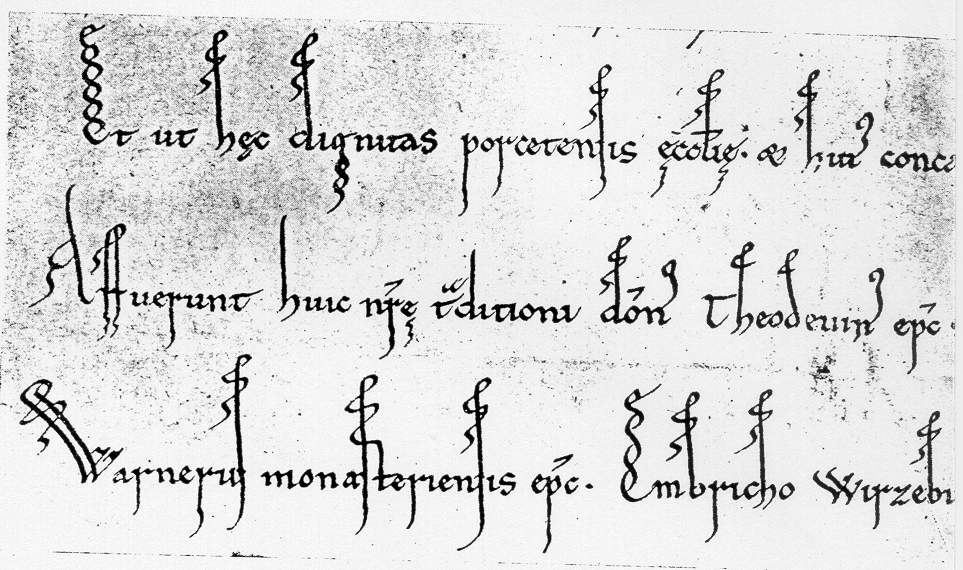 Et ut hęc dignitas porcetensis ęcclię. &
Affuerunt huic nr̄ę tᵃditioni dōn̄ Theodeuin' ep̄c
Warnerius monasteriensis ep̄c. Embricho